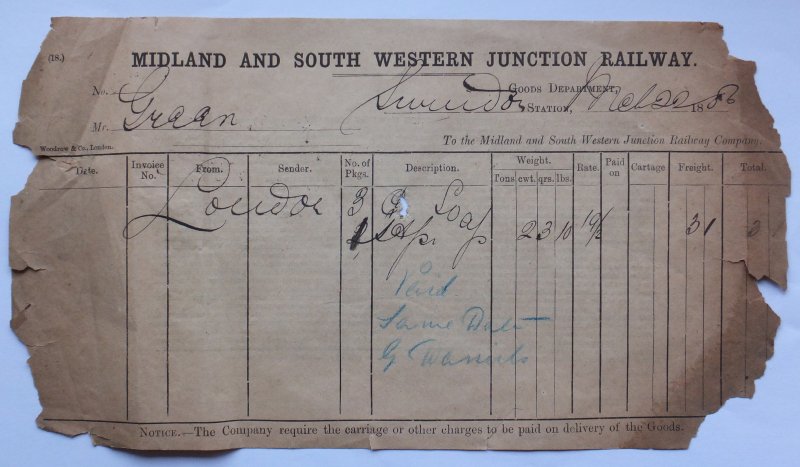 (18.)
MIDLAND AND SOUTH WESTERN JUNCTION RAILWAY.
No. GOODS DEPARTMENT,
Mr. Green Swindon STATION, 22 188
Woodrow & Co., London. To the Midland and South Western Junction Railway Company.
Date. Invoice No. From. Sender. No. of Pkgs. Description. Weight. Rate. Paid on Cartage Freight. Total.
Tons cwt. qrs. lbs.
London 3 Soap
1 2 3 10 3 1 3 1
Paid
Same Date
G Daniels
NOTICE.—The Company require the carriage or other charges to be paid on delivery of the Goods.